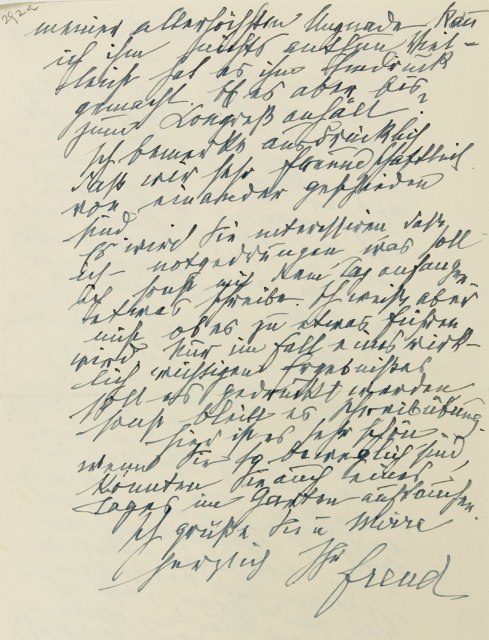 meiner allerhöchsten Ungnade. Kann
ich ihm nichts antun. Viel-
leicht hat es ihm Eindruck
gemacht. Ob es aber bis
zum Congreß anhält?
Ich bemerke ausdrücklich
daß wir sehr freundschaftlich
von einander geschieden
sind.
Es wird Sie interessiren daß
ich – notgedrungen was soll
ich sonst mit dem Tag anfangen
etwas schreibe. Ich weiß aber
nicht ob es zu etwas führen
wird. Nur im Fall eines wirk-
lich wichtigen Ergebnißes
soll es gedruckt werden
sonst bleibt es Schreibübung.
Hier ist es sehr schön,
wenn Sie so beweglich sind,
könnten Sie auch eines
Tages im Garten auftauchen.
Ich grüße Sie u
herzlich Ihr
Freud